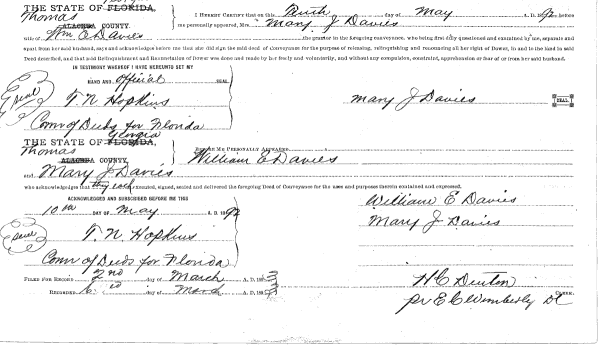 THE STATE OF FLORIDA,
Thomas
ALACHUA COUNTY.
I HEREBY CERTIFY that on this Tenth day of May A. D. 1892 before
me personally appeared, Mrs. Mary J Davies
wife of Wm E Davies the grantor to the foregoing conveyance, who being first duly questioned and examined by me, separate and
apart from her said husband, says and acknowledges before me that she did sign the said deed of Conveyance for the purpose of releasing, relinquishing and renouncing all her right of Dower, in and to the land in said
Deed described, and that said Relinquishment and Renunciation of Dower was done and made by her freely and voluntarily, and without any compulsion, constraint, apprehension or fear of or from her said husband.
IN TESTIMONY WHEREOF I HAVE HEREUNTO SET MY
HAND AND official SEAL
Seal
T. N. Hopkins
Mary J Davies SEAL.
Comr of Deeds for Florida
Georgia
THE STATE OF FLORIDA,
Thomas
ALACHUA COUNTY.
BEFORE ME PERSONALLY APPEARED
William E Davies
and Mary J Davies
who acknowledges that they each executed, signed, sealed and delivered the foregoing Deed of Conveyance for the uses and purposes therein contained and expressed.
ACKNOWLEDGED AND SUBSCRIBED BEFORE ME THIS
10th DAY OF May A. D. 1892
William E Davies
Mary J Davies
Seal
T. N. Hopkins
Comr of Deeds for Florida
FILED FOR RECORD 2nd day of March A. D. 189
RECORDED day of March A. D. 189
H C Denton
CLERK.
pr E C Wimberly DC